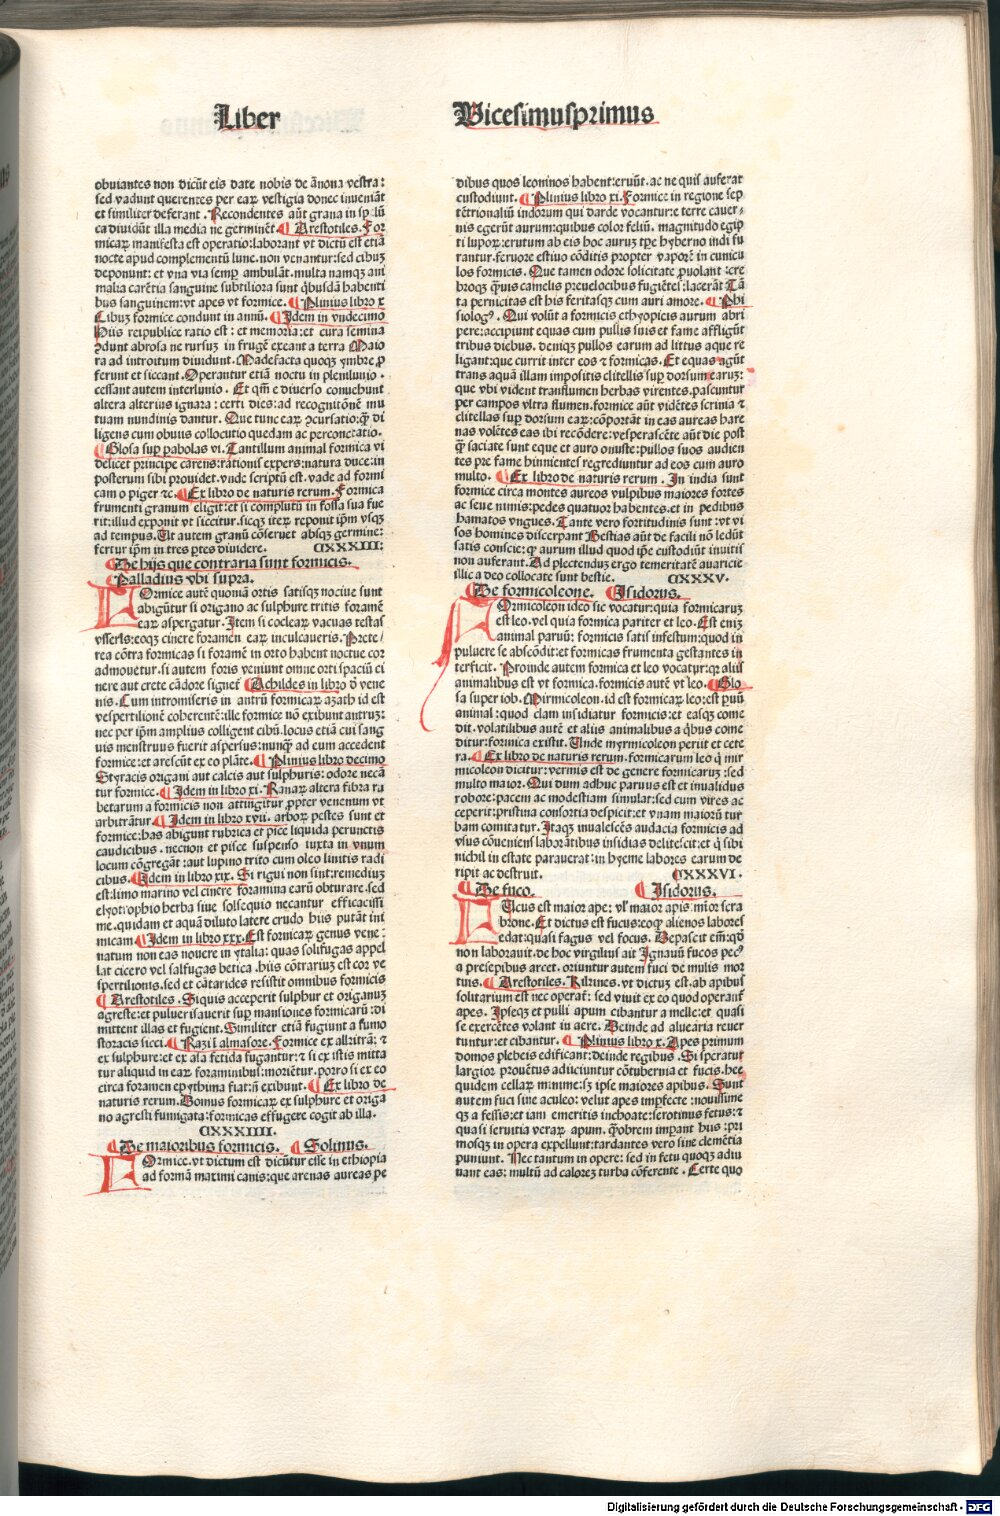 Liber
Vicesimusprimus
obuiantes non dicūt eis date nobis de ānona vestra:
sed vadunt querentes per eaꝝ vestigia donec inueniāt
et similiter deferant. Recondentes aūt grana in
ca diuidūt illa media ne germinēt. ¶ Arestotiles. For
micaꝝ manifesta est operatio: laborant vt dictū est etiā
nocte apud complementū lune. non venantur: sed cibuꝫ
deponunt: et vna via semꝑ ambulāt. multa namqꝫ ani
malia carētia sanguine subtiliora sunt q̇busdā habenti
bus sanguinem: vt apes vt formice. ¶ Plinius libro x
Cibuꝫ formice condunt in annū. ¶ Idem in vndecimo
Hiis reipublice ratio est: et memoria: et cura semina
ꝯdunt abrosa ne rursuꝫ in frugē exeant a terra Maio
ra ad introitum diuidunt. Madefacta quoqꝫ ymbre ꝓ
ferunt et siccant. Operantur etiā noctu in plenilunio.
cessant autem interlunio. Et qm̄ e diuerso conuehunt
altera alterius ignara: certi dies: ad recognitionē mu
tuam nundinis dantur. Que tunc eaꝝ ꝯcursatio: ꝙ̄ di
ligens cum obuiis collocutio quedam ac percontatio.
¶ Glosa suꝑ ꝑabolas vi. Tantillum animal formica vi
delicet principe carens: rationis expers: natura duce: in
posterum sibi prouidet. vnde scriptū est. vade ad formi
cam o piger ⁊c. ¶ Ex libro de naturis rerum. Formica
frumenti granum eligit: et si complutū in fossa sua fue
rit: illud exponit vt siccitur. sicqꝫ iteꝝ reponit ipm̄ vsqꝫ
ad tempus. Ut autem granū cōseruet absqꝫ germine:
fertur ipm̄ in tres ꝑtes diuidere. CXXXIII:
¶ De hijs que contraria sunt formicis.
¶ Palladius vbi supra.
FOrmice autē quoniā ortis satisqꝫ nociue sunt
abigūtur si origano ac sulphure tritis foramē
eaꝝ aspergatur. Item si cocleaꝝ vacuas testas
vsseris: eoqꝫ cinere foramen eaꝝ inculcaueris. Prete
rea cōtra formicas si foramē in orto habent noctue cor
admouetur. si autem foris veniunt omne orti spaciū ci
nere aut crete cādore signet ¶ Achildes in libro ō vene
nis. Cum intromiseris in antrū formicaꝝ azath id est
vespertilionē coherentē: ille formice nō exibunt antruꝫ:
nec per ipm̄ amplius colligent cibū. locus etiā cui sang
uis menstruus fuerit aspersus: nunꝙ̄ ad eum accedent
formice: et arescūt ex eo plāte. ¶ Plinius libro decimo
Styracis origani aut calcis aut sulphuris: odore necā
tur formice. ¶ Idem in libro xi. Ranaꝝ altera fibra ru
betarum a formicis non attingitur ꝓpter venenum vt
arbitrātur. ¶ Idem in libro xvii. arboꝝ pestes sunt et
formice: has abigunt rubrica et pice liquida perunctis
caudicibus. necnon et pisce suspenso iuxta in vnum
locum cōgregāt: aut lupino trito cum oleo linitis radi
cibus. ¶ Idem in libro xix. Si rigui non sint: remediuꝫ
est: limo marino vel cinere foramina earū obturare. sed
elyotrophio herba siue solsequio necantur efficacissi
me. quidam et aquā diluto latere crudo hiis putāt ini
micam. ¶ Idem in libro xxx. Est formicaꝝ genus vene:
natum non eas nouere in ytalia: quas solifugas appel
lat cicero vel salfugas betica. hiis cōtrariuꝫ est cor ve
spertilionis. sed et cātarides resistit omnibus formicis
¶ Arestotiles. Siquis acceperit sulphur et origanuꝫ
agreste: et puluerisauerit suꝑ mansiones formicarū: di
mittent illas et fugient. Similiter etiā fugiunt a fumo
storacis sicci. ¶ Razi ī almasore. Formice ex allzitrā: ⁊
ex sulphure: et ex asa fetida fugantur: ⁊ si ex istis mitta
tur aliquid in eaꝝ foraminibus: moriētur. porro si ex eo
circa foramen epythima fiat: nō exibunt. ¶ Ex libro de
naturis rerum. Domus formicaꝝ ex sulphure et origa
no agresti fumigata: formicas effugere cogit ab illa.
CXXXIIII.
¶ De maioribus formicis. ¶ Solinus.
FOrmice. vt dictum est dicūtur esse in ethiopia
ad formā maximi canis: que arenas aureas pe
dibus quos leoninos habent: eruūt. ac ne quis auferat
custodiunt. ¶ Plinius libro xi. Formice in regione sep
tētrionaliū indorum qui darde vocantur: e terre cauer⸗
nis egerūt aurum: quibus color feliū. magnitudo egip
ti lupoꝝ: erutum ab eis hoc auruꝫ tꝑe hyberno indi fu
rantur. feruore estiuo cōditis propter vaporē in cunicu
los formicis. Que tamen odore solicitate ꝓuolant: cre
broqꝫ ꝙuis camelis preuelocibus fugiētes: lacerāt Tā
ta pernicitas est his feritasqꝫ cum auri amore. ¶ Phi
siologꝰ. Qui volūt a formicis ethyopicis aurum abri
pere: accipiunt equas cum pullis suis et fame affligūt
tribus diebus. deniqꝫ pullos earum ad littus aque re
ligant: que currit inter eos ⁊ formicas. Et equas agūt
trans aquā illam impositis clitellis suꝑ dorsum earuꝫ:
que vbi vident transflumen herbas virentes. pascuntur
per campos vltra flumen. formice aūt vidētes scrinia ⁊
clitellas suꝑ dorsum eaꝝ: cōportāt in eas aureas hare
nas volētes eas ibi recōdere: vesperascēte aūt die post
ꝙ̄ saciate sunt eque et auro onuste: pullos suos audien
tes pre fame hinnientes regrediuntur ad eos cum auro
multo. ¶ Ex libro de naturis rerum. In india sunt
formice circa montes aureos vulpibus maiores fortes
ac seue nimis: pedes quatuor habentes. et in pedibus
hamatos vngues. Tante vero fortitudinis sunt: vt vi
sos homines discerpant Bestias aūt de facili nō ledūt
satis conscie: ꝙ aurum illud quod ip̄e custodiūt inuitis
non auferant. Ad plectendus ergo temeritatē auaricie
illic a deo collocate sunt bestie. CXXXV.
¶ De formicoleone. ¶ Isidorus.
FOrmicoleon ideo sic vocatur: quia formicaruꝫ
est leo. vel quia formica pariter et leo. Est eniꝫ
animal paruū: formicis satis infestum: quod in
puluere se abscōdit: et formicas frumenta gestantes in
terficit. Proinde autem formica et leo vocatur: ꝙ aliis
animalibus est vt formica. formicis autē vt leo. ¶ Glo
sa super iob. Mirmicoleon. id est formicaꝝ leo: est ꝑuū
animal: quod clam insidiatur formicis: et easqꝫ come
dit. volatilibus autē et aliis animalibus a q̇bus come
ditur: formica existit. Unde myrmicoleon periit et cete
ra. ¶ Ex libro de naturis rerum. formicarum leo q̇ mir
micoleon dicitur: vermis est de genere formicaruꝫ: sed
multo maior. Qui dum adhuc paruus est et inualidus
robore: pacem ac modestiam simulat: sed cum vires ac
ceperit: pristina consortia despicit: et vnam maiorū tur
bam comitatur. Itaqꝫ inualescēs audacia formicis ad
vsus cōueniens laborātibus insidias delitescit: et q̇ sibi
nichil in estate parauerat: in hyeme labores earum de
ripit ac destruit. CXXXVI.
¶ De fuco. ¶ Isidorus.
FUcus est maior ape: vl̓ maior apis mīor scra
brone. Et dictus est fucus: eoꝙ alienos labores
edat: quasi fagus vel focus. Depascit eīm: qd̄
non laborauit. de hoc virgilius ait Ignauū fucos pecꝰ
a presepibus arcet. oriuntur autem fuci de mulis mor
tuis. ¶ Arestotiles. Kilrines. vt dictuꝫ est. ab apibus
solitarium est nec operat̄: sed viuit ex eo quod operant̄
apes. Ipseqꝫ et pulli apum cibantur a melle: et quasi
se exercētes volant in aere. Deinde ad aluearia reuer
tuntur: et cibantur. ¶ Plinius libro x. Apes primum
domos plebeis edificant: deinde regibus. Si speratur
largior prouētus adiciuntur cōtubernia et fucis. hee
quidem cellaꝝ minime: sꝫ ipse maiores apibus. Sunt
autem fuci sine aculeo: velut apes imꝑfecte: nouissime
qꝫ a fessis: et iam emeritis inchoate: serotinus fetus: ⁊
quasi seruitia veraꝝ apum. ꝙ̄obrem imꝑant hiis: pri
mosqꝫ in opera expellunt: tardantes vero sine clemētia
puniunt. Nec tantum in opere: sed in fetu quoqꝫ adiu
uant eas: multū ad caloreꝫ turba cōferente. Certe quo
Digitalisierung gefördert durch die Deutsche Forschungsgemeinschaft - DFG